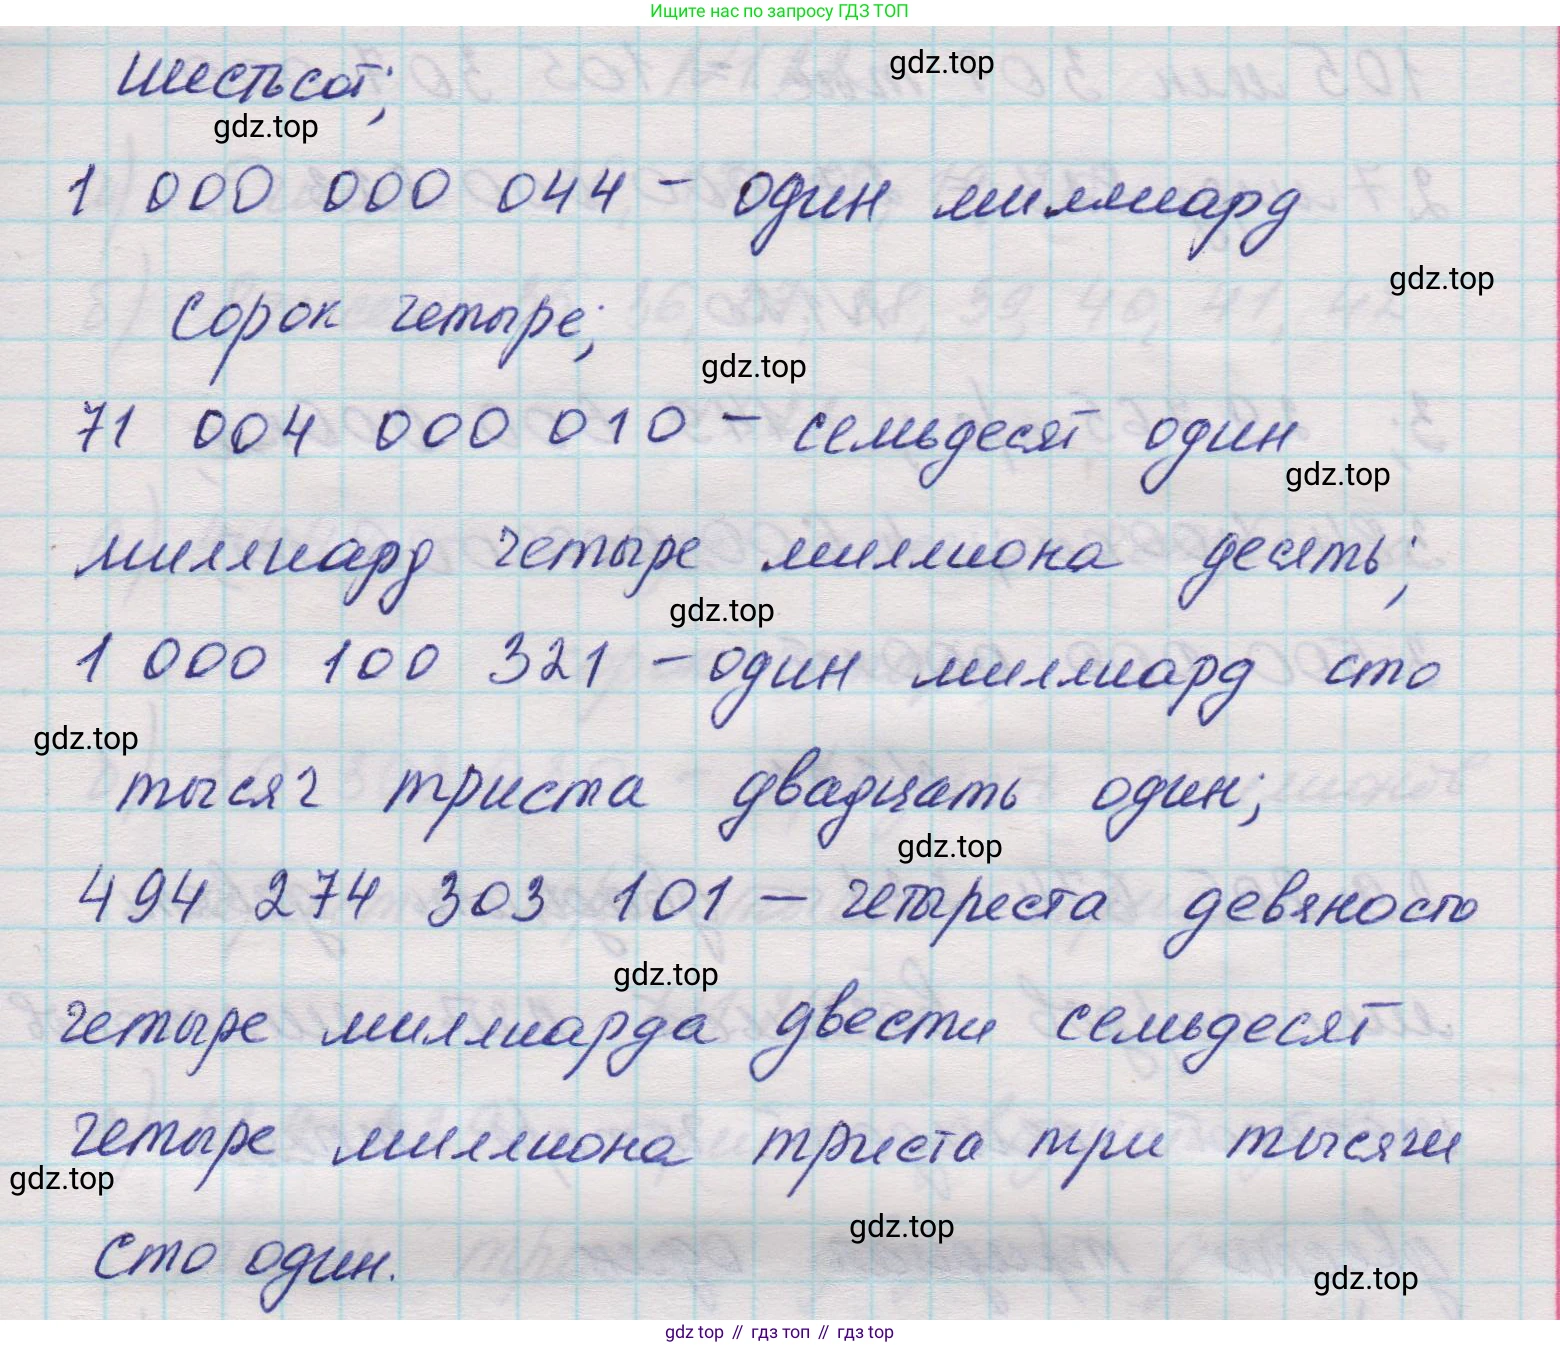 Ищите нас по запросу ГДЗ ТОП
шестьсот;
gdz.top
gdz.top
1 000 000 044 – один миллиард
gdz.top
сорок четыре;
gdz.top
71 004 000 010 – семьдесят один
gdz.top
миллиард четыре миллиона десять;
gdz.top
1 000 100 321 – один миллиард сто
gdz.top
тысяч триста двадцать один;
gdz.top
494 274 303 101 – четыреста девяносто
gdz.top
четыре миллиарда двести семьдесят
четыре миллиона триста три тысячи
gdz.top
gdz.top
сто один.
gdz.top
gdz top // гдз топ // гдз top